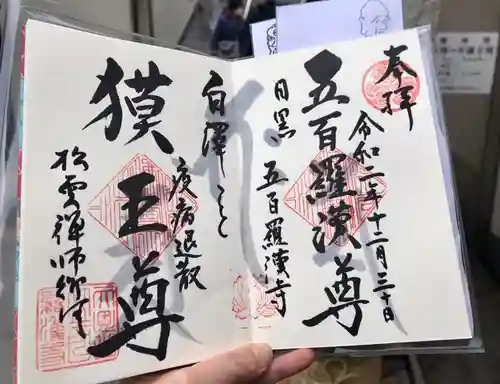 奉拝
令和二年十二月三十日
五百羅漢尊
目黒 五百羅漢寺
白澤こと
疫病退散
獏王尊
松雲禅師御作